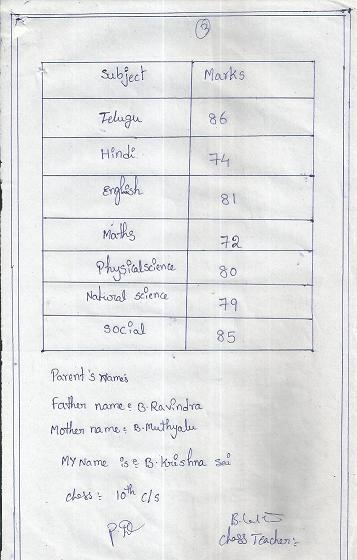 2
Subject Marks
Telugu 86
Hindi 74
English 81
Maths 72
Physicalscience 80
Natural science 79
Social 85
Parent's Names
Father name : B.Ravindra
Mother name : B.Muthyalu
MY Name is : B.Krishna Sai
class : 10th c/s
class Teacher: